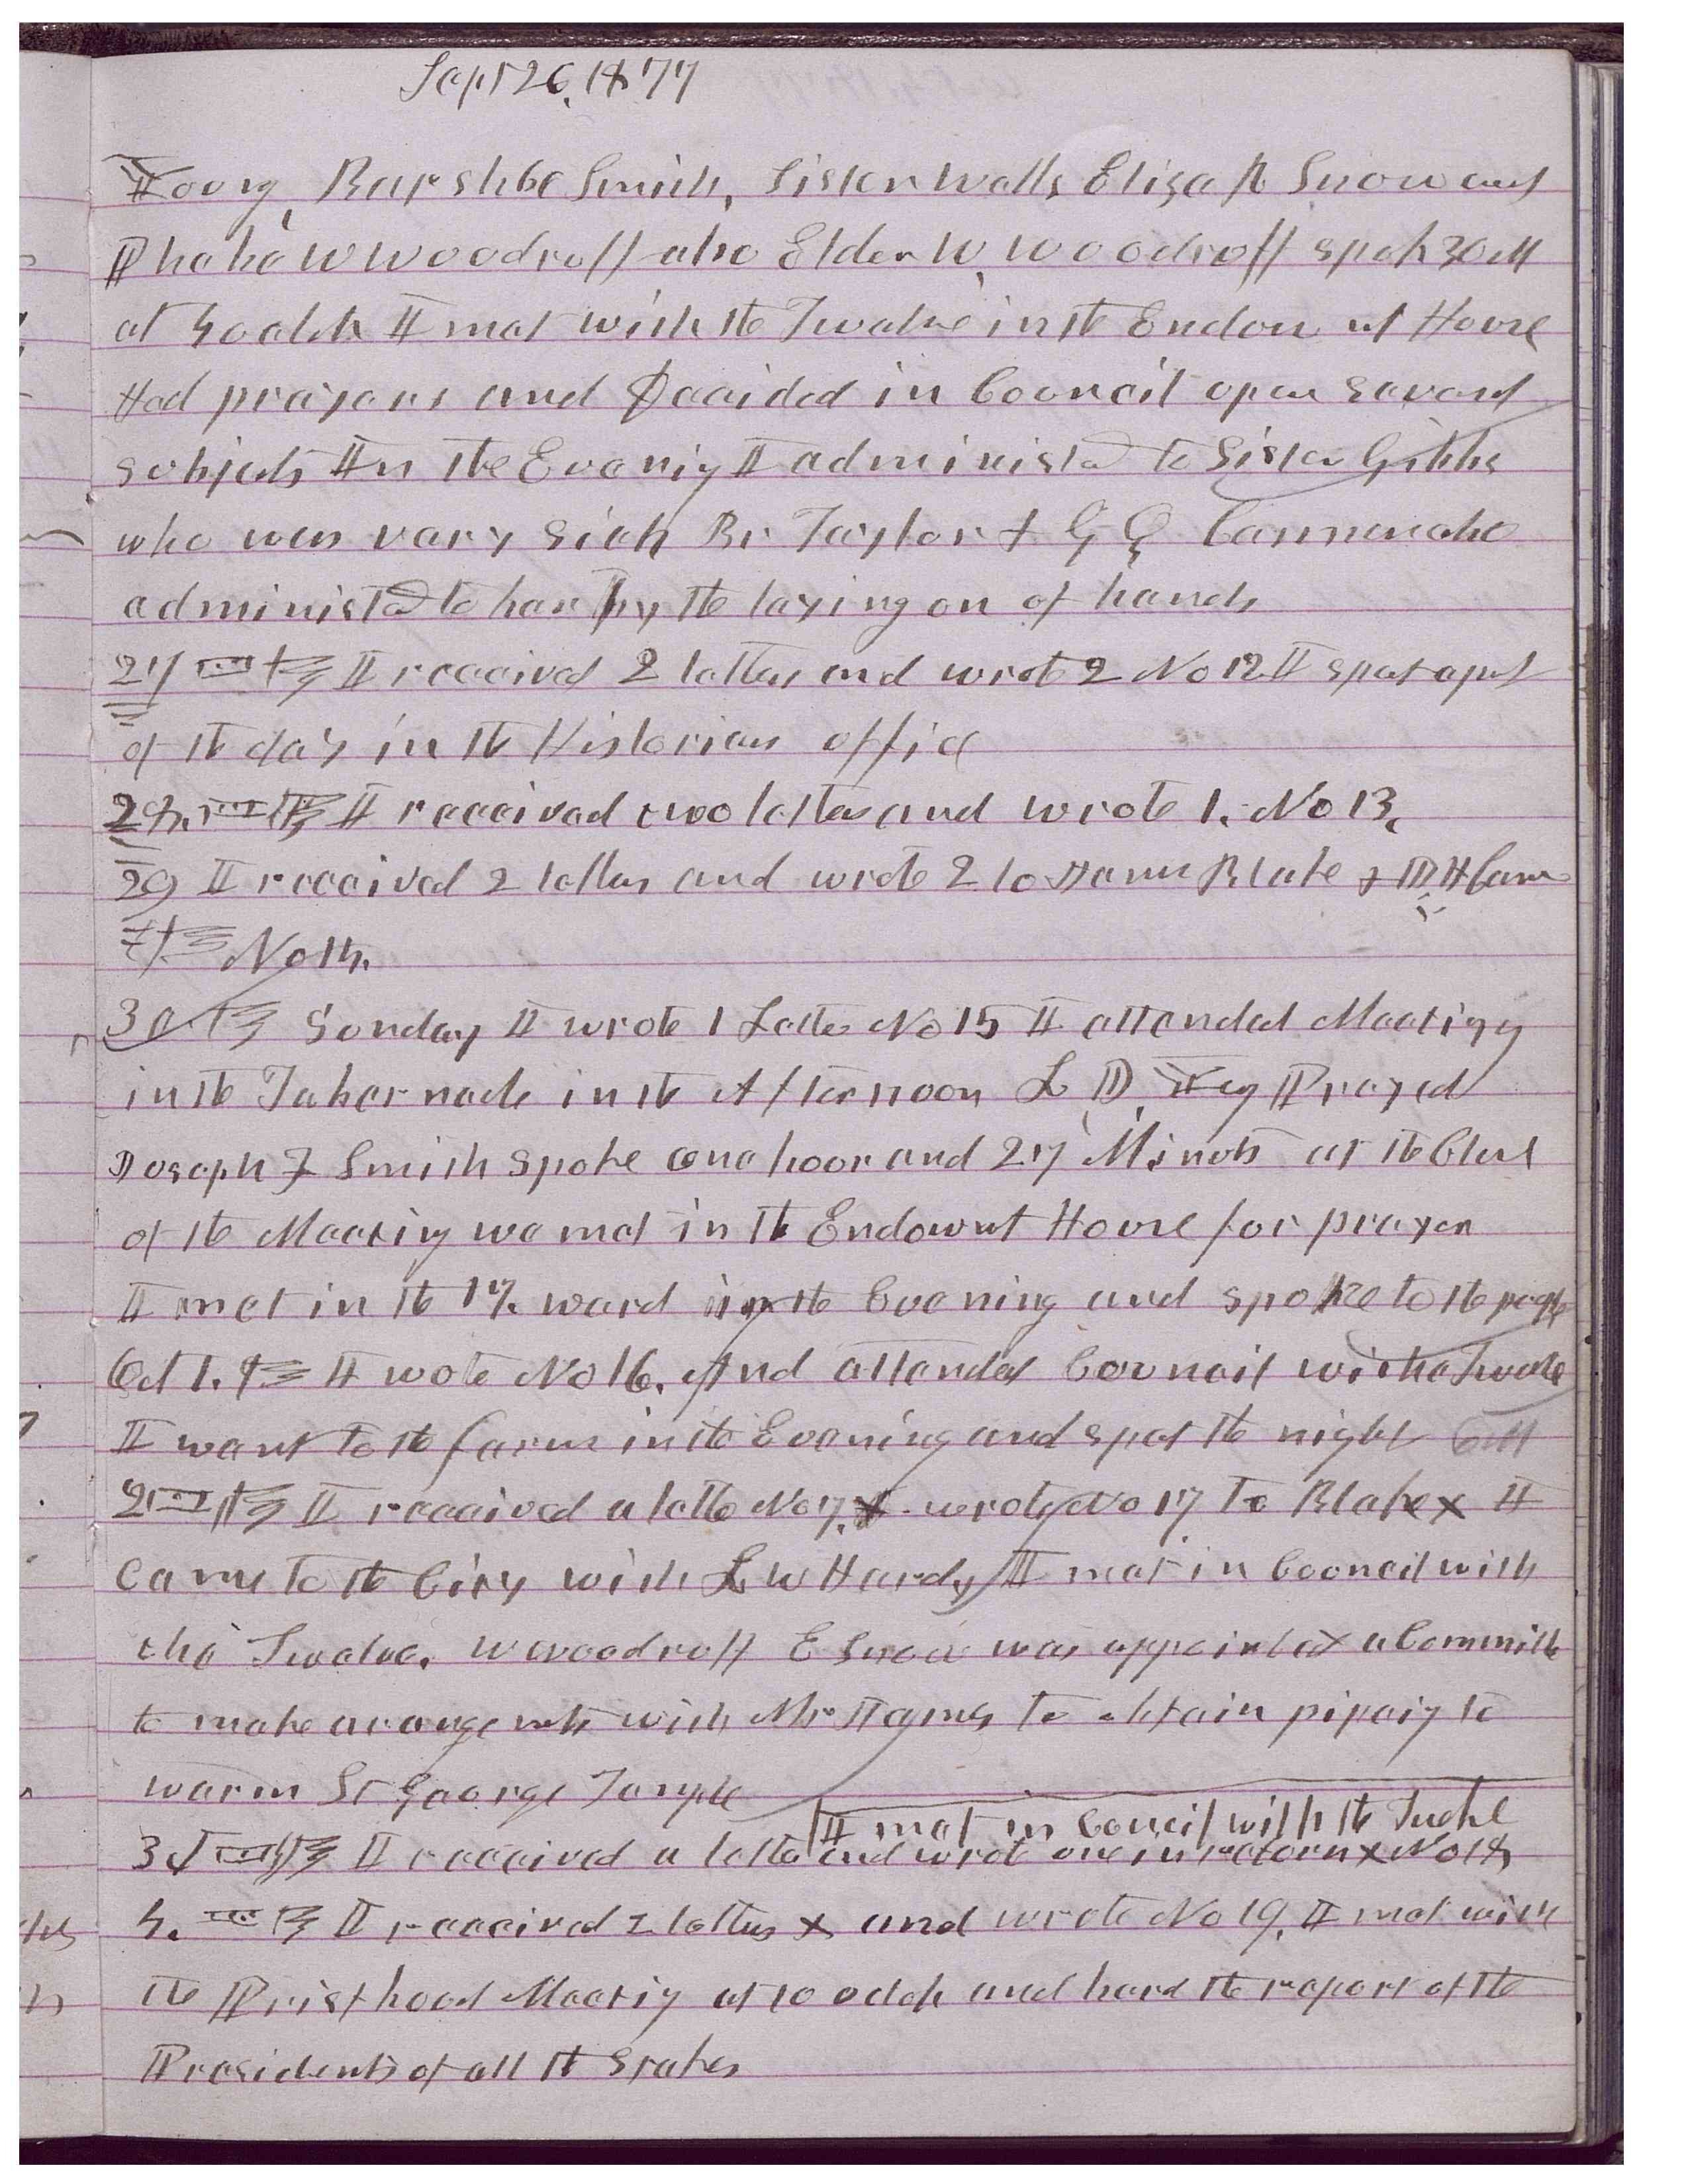 Sept 26, 1877
Young, Barshbe Smith, Sister Wells Eliza R Snow and
Phebe W Woodruff also Elder W. Woodruff spok 30 M
at 4 oclok I met with the Twelve in the Endowmt House
Had prayers and Decided in Council upon severl
subjects In the Evening I administed to Sister Gibbs
who was very sick Br Taylor & G Q Cannon also
administed to her by the laying on of hands
27 I received 2 letters and wrote 2 No 12 I spet a part
of the day in the Historians office
28. I received two letters and wrote 1. No 13.
29 I received 2 letters and wrote 2 to Henru Blake & D, H Cann
No 14.
30 Sunday I wrote 1 Letter No 15 I attended Meeting
in the Tabernacle in the Afternoon L D. Yug Prayed
Joseph F Smith spoke one hour and 27 Minuts at the Close
of the Meeting we met in the Endowmt House for prayer
I met in the 17. ward in the Evening and spoke to the people
Oct 1. I wote No 16. And attended Council with the Twelve
I went to the farm in the Evening and spet the night
2 I received a lette No 7. wrote No 17 To Blake x I
Came to the City with L W Hardy I met in Council with
the Twelve. W Woodruff E Snow was appointed a Committe
to make arangemets with Mr Hayms to obtain pipeing to
warm St George Temple
I met in Coucil with the Twelve
3d I received a lette and wrote one in return x No 18
4. I received 2 letters x and wrote No 19. I met with
the Pristhood Meeting at 10 oclok and herd the report of the
Presidents of all the Stakes